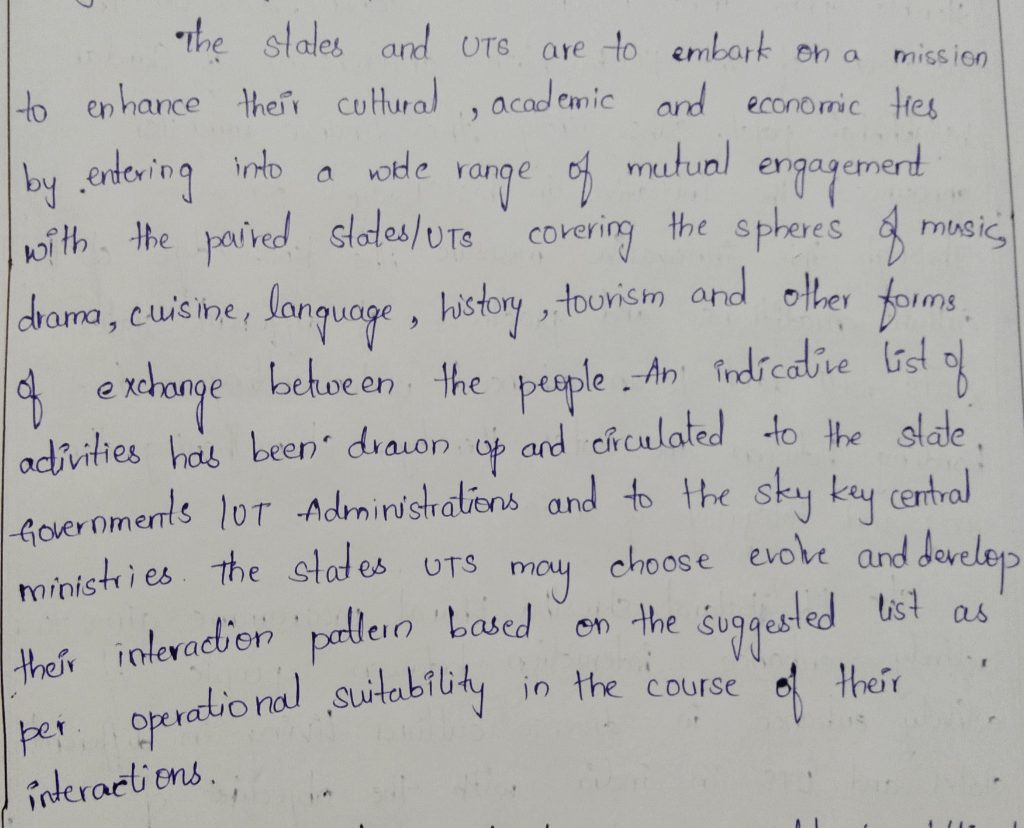 The states and UTS are to embark on a mission
to enhance their cultural, academic and economic ties
by entering into a wide range of mutual engagement
with the paired states/UTs covering the spheres of music,
drama, cuisine, language, history, tourism and other forms
of exchange between the people. An indicative list of
activities has been drawn up and circulated to the state
Governments /UT Administrations and to the sky key central
ministries. The states UTS may choose evolve and develop
their interaction pattern based on the suggested list as
per operational suitability in the course of their
interactions.